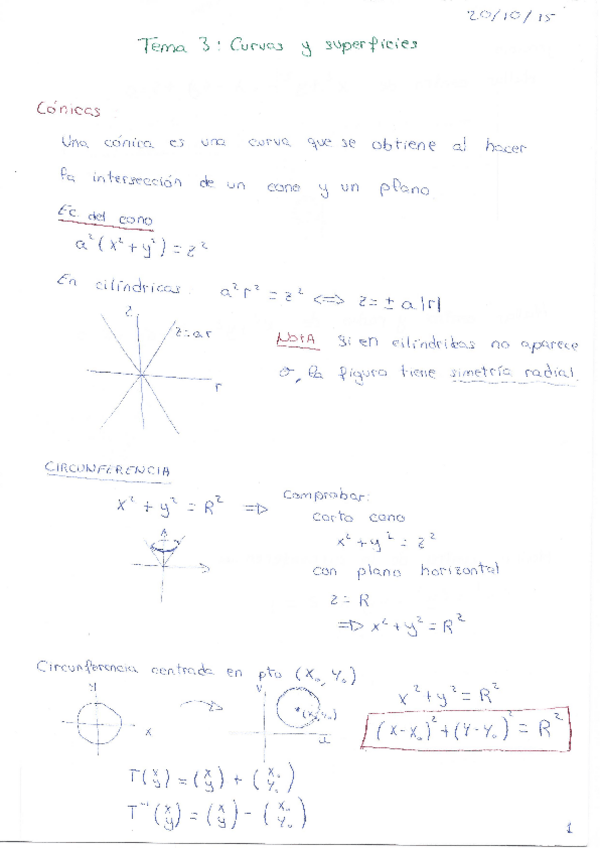 20/10/15
Tema 3: Curvas y superficies
Cónicas
Una cónica es una curva que se obtiene al hacer
la intersección de un cono y un plano
Ec. del cono
a²(x²+y²)=z²
En cilíndricas a²r²=z² <=> z=±a|r|
z
z=ar
r
NOTA Si en cilíndricas no aparece
σ, la figura tiene simetría radial
CIRCUNFERENCIA
x²+y²=R² => Comprobar:
corto cono
x²+y²=z²
con plano horizontal
z=R
=> x²+y²=R²
Circunferencia centrada en pto (x₀,y₀)
y
x
(x₀,y₀)
x²+y²=R²
(x-x₀)²+(y-y₀)²=R²
T(x y)=(x y)+(x₀ y₀)
T⁻¹(x y)=(x y)-(x₀ y₀)
1